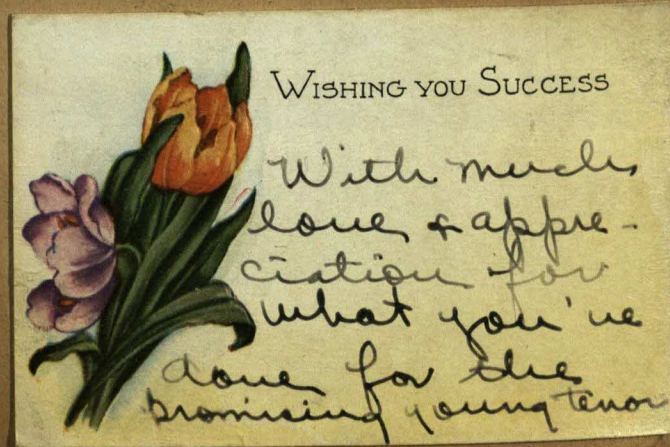 WISHING YOU SUCCESS
With much
love & appre-
ciation for
what you've
done for the
promising young tenor